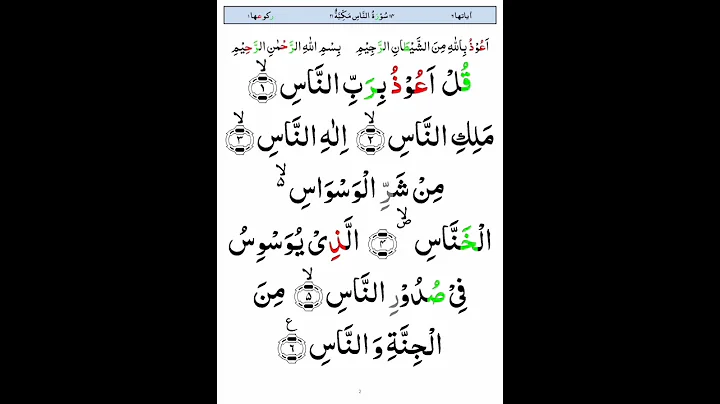 اٰیاتها ٦ سُوۡرَةُ النَّاسِ مَکِّیَّةٌ رکوعها ١
اَعُوۡذُ بِاللّٰهِ مِنَ الشَّیۡطٰانِ الرَّجِیۡمِ بِسۡمِ اللّٰهِ الرَّحۡمٰنِ الرَّحِیۡمِ
قُلۡ اَعُوۡذُ بِرَبِّ النَّاسِ ۙ﴿۱﴾
مَلِکِ النَّاسِ ۙ﴿۲﴾ اِلٰهِ النَّاسِ ۙ﴿۳﴾
مِنۡ شَرِّ الۡوَسۡوَاسِ ۙ۬
الۡخَنَّاسِ ۪ۙ﴿۴﴾ الَّذِیۡ یُوَسۡوِسُ
فِیۡ صُدُوۡرِ النَّاسِ ۙ﴿۵﴾ مِنَ
الۡجِنَّةِ وَ النَّاسِ ﴿۶﴾ ع
2